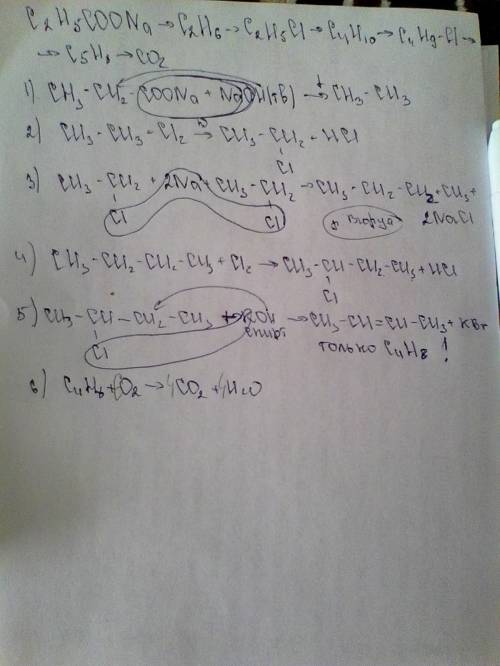 C₂H₅COONa → C₂H₆ → C₂H₅Cl → C₄H₁₀ → C₄H₉Cl →
→ C₅H₈ → CO₂
1) CH₃-CH₂-COONa + NaOH(тв) →t CH₃-CH₃
2) CH₃-CH₃-Cl₂ → CH₃-CH₂-HCl
Cl
3) CH₃-CH₂ + 2Na + CH₃-CH₂ → CH₃-CH₂-CH₂+CH₃+
Cl Cl р. Вюрца 2NaCl
4) CH₃-CH₂-CH₂-CH₃ + Cl₂ → CH₃-CH-CH₂-CH₃ + HCl
Cl
5) CH₃-CH-CH₂-CH₃ + KOH → CH₃-CH=CH-CH₃ + KBr
Cl спирт только C₄H₈ !
6) C₄H₈+6O₂ → 4CO₂ + 4H₂O